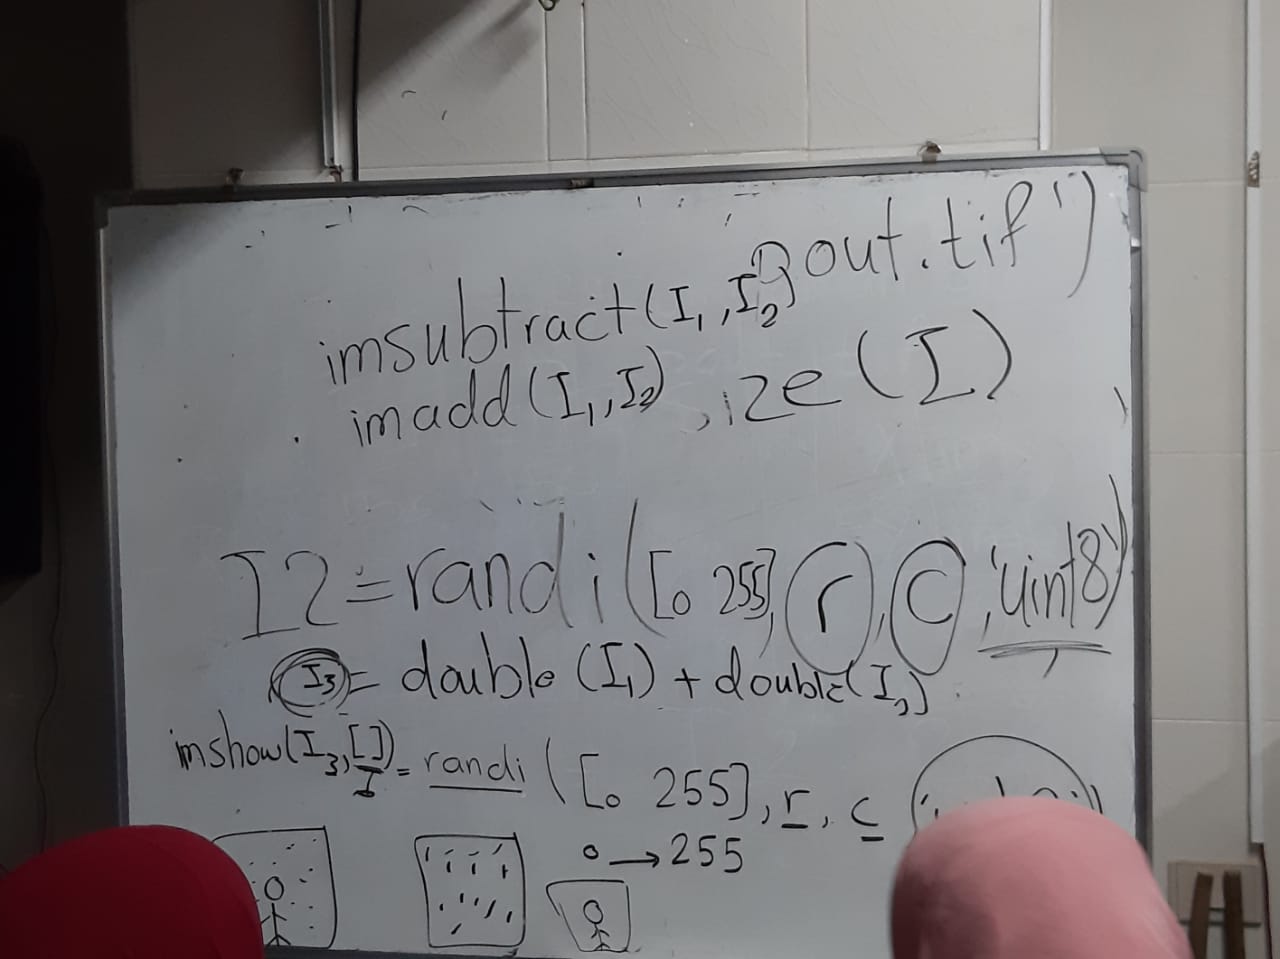 out.tif')
imsubtract(I1,I2)
imadd(I1,I2) ize(I)
I2=randi([0 255],r,c,'uint8')
I3=double(I1)+double(I2)
imshow(I3,[])
I=randi([0 255],r,c
0→255